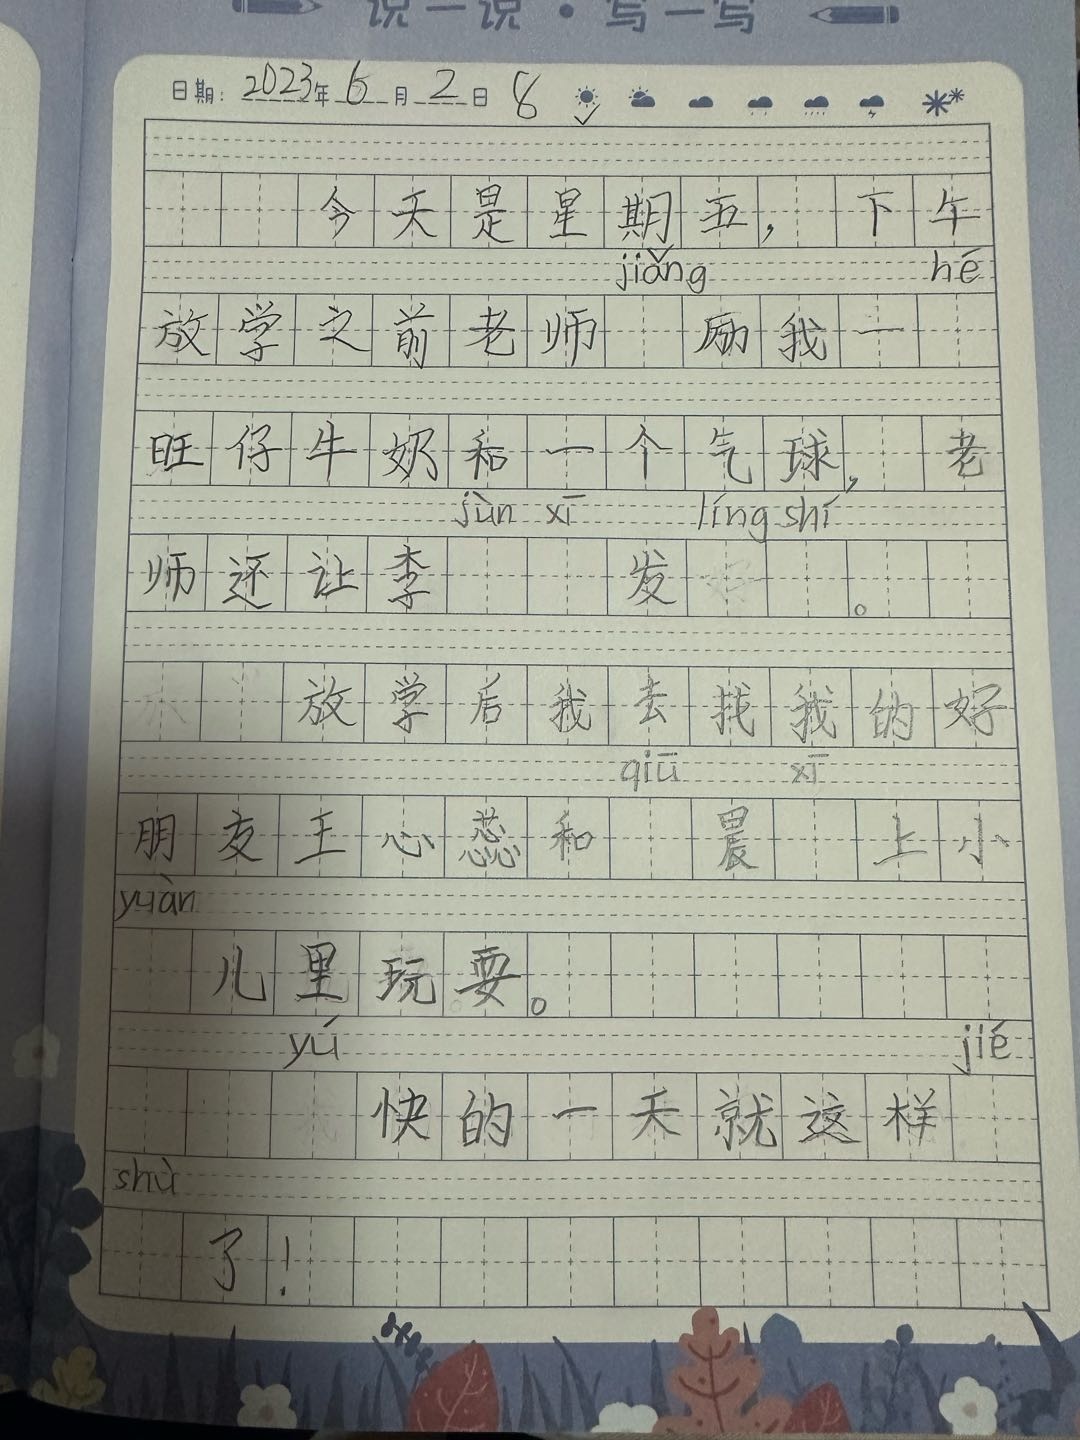 说一说·写一写
日期：2023年6月2日 8
今天是星期五，下午
jiǎng hé
放学之前老师 励我一
旺仔牛奶和一个气球，老
jùn xī líng shí
师还让李 发 。
放学后我去找我的好
qiū xī
朋友王心蕊和 晨 上小
yuàn
儿里玩耍。
yú jié
快的一天就这样
shù
了！